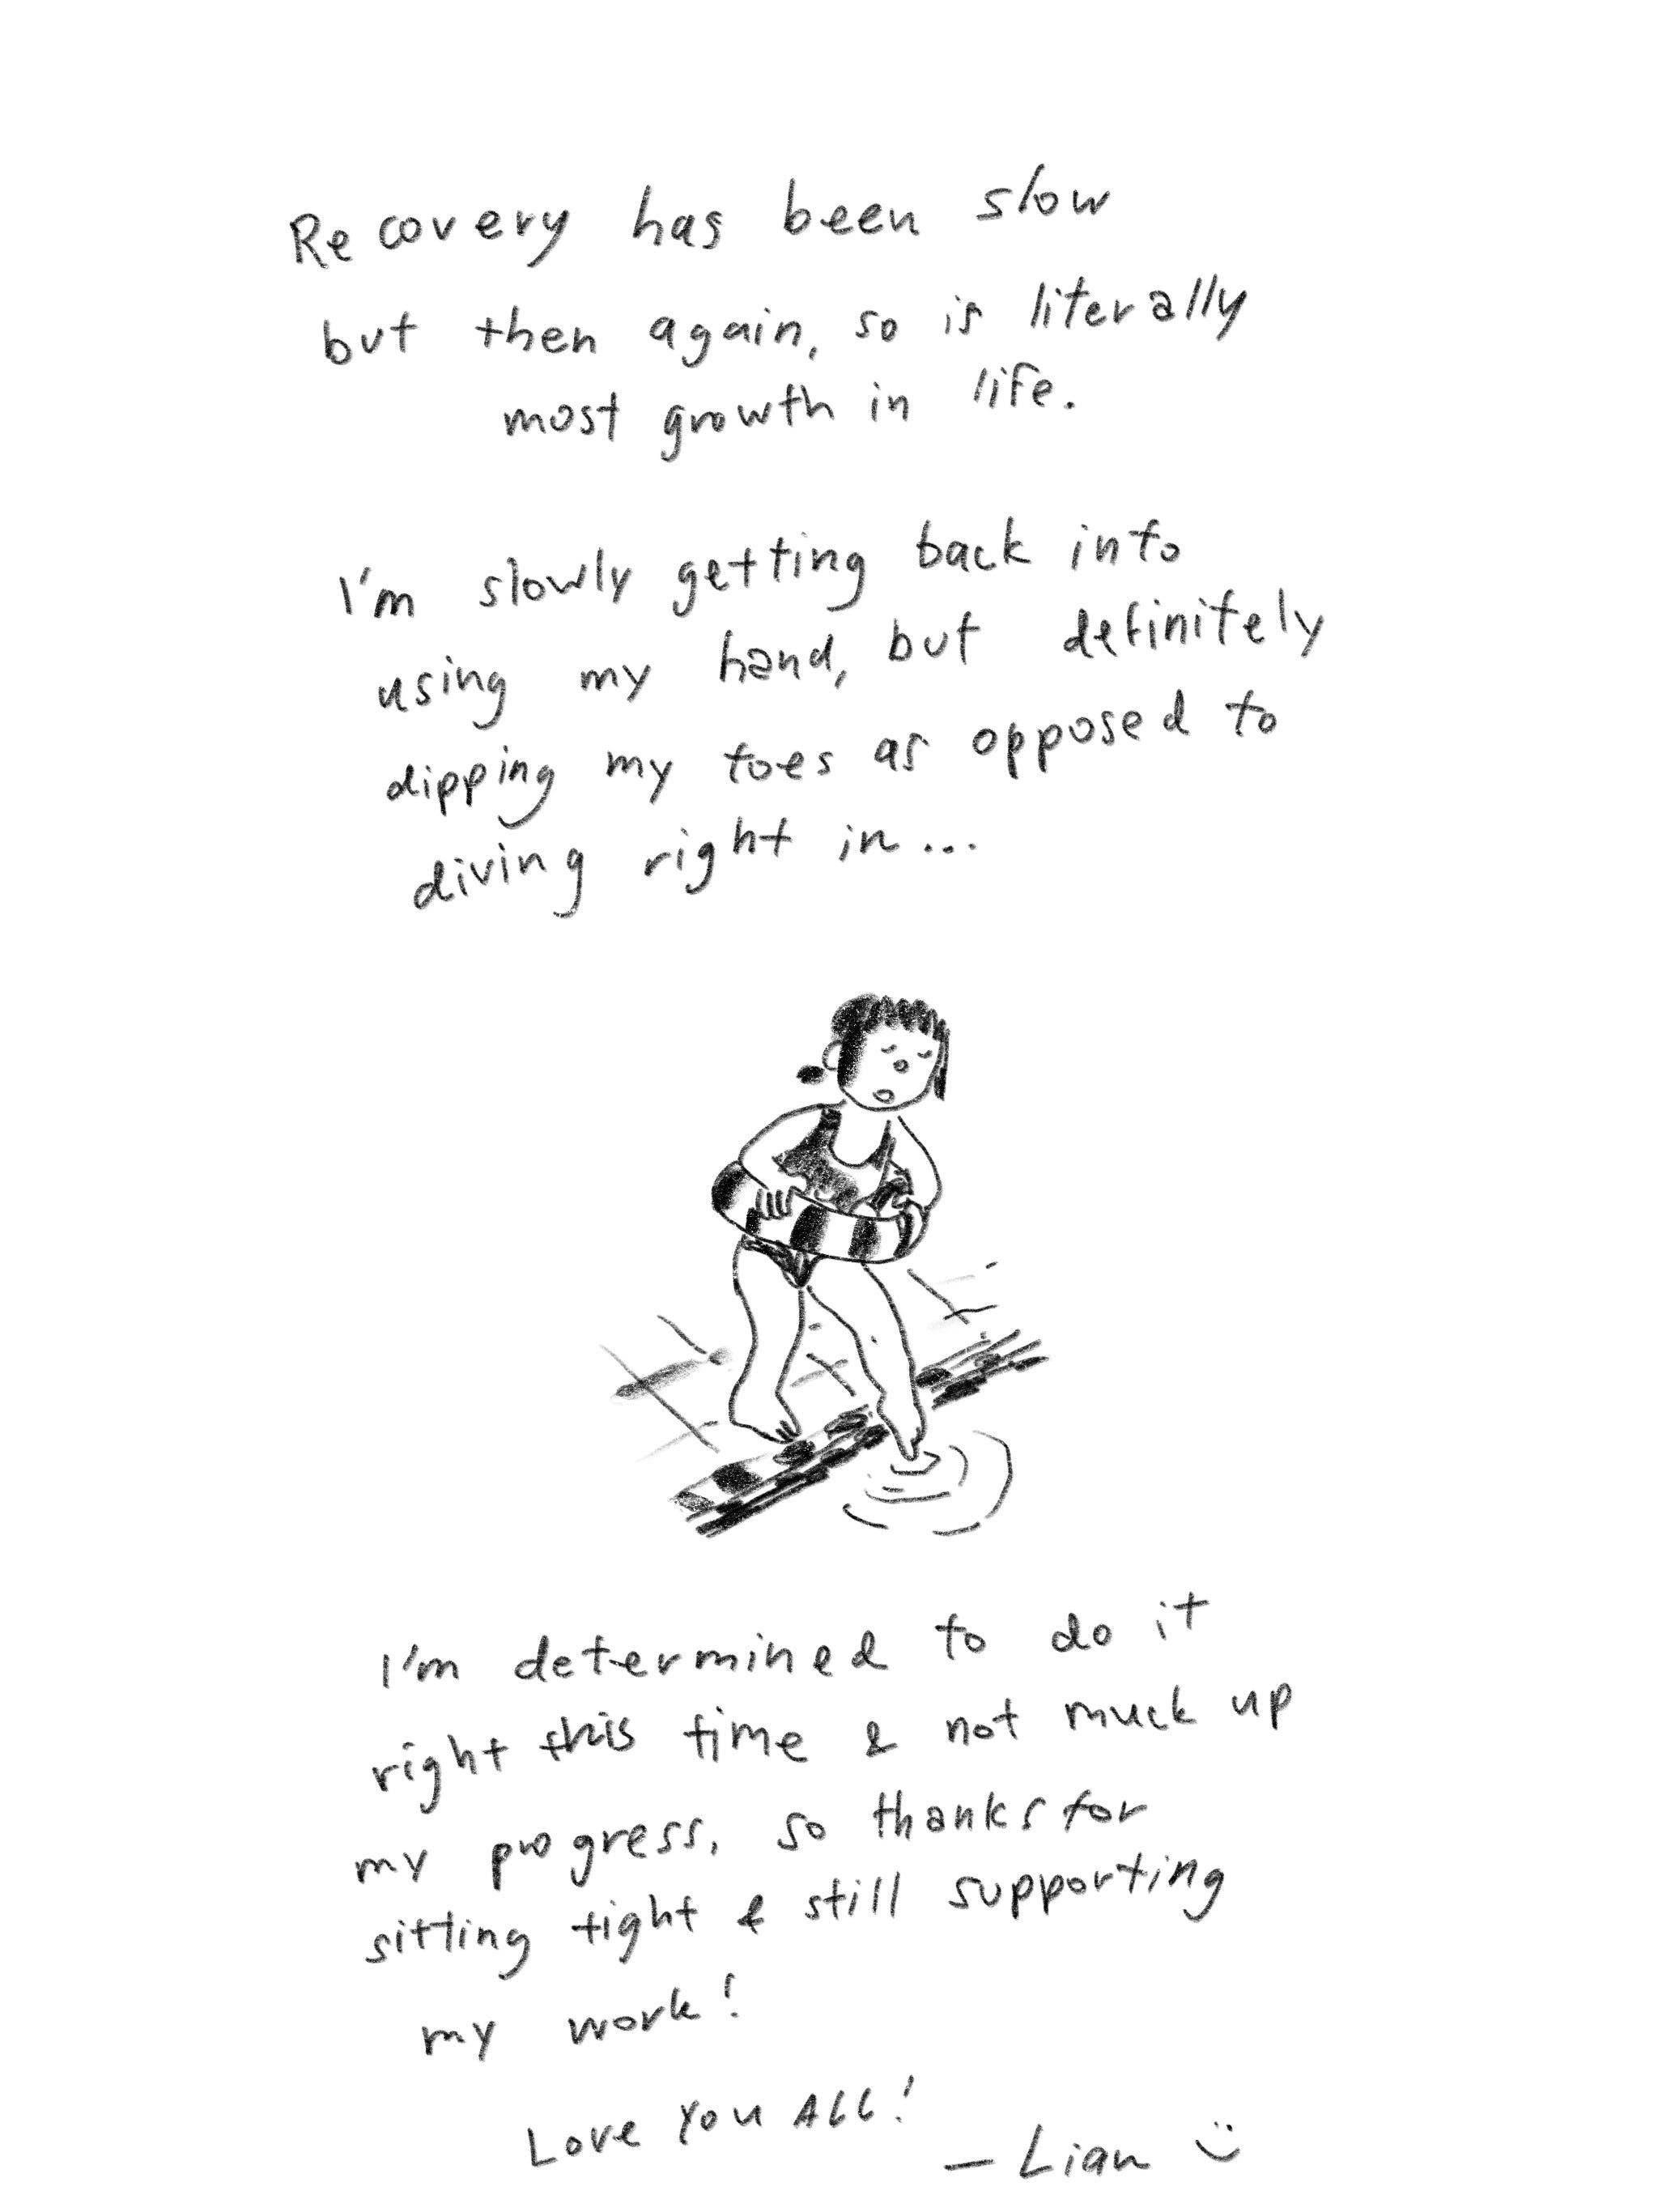 Recovery has been slow
but then again, so is literally
most growth in life.
I'm slowly getting back into
using my hand, but definitely
dipping my toes as opposed to
diving right in...
I'm determined to do it
right this time & not muck up
my progress, so thanks for
sitting tight & still supporting
my work!
LOVE YOU ALL!
— Lian :)